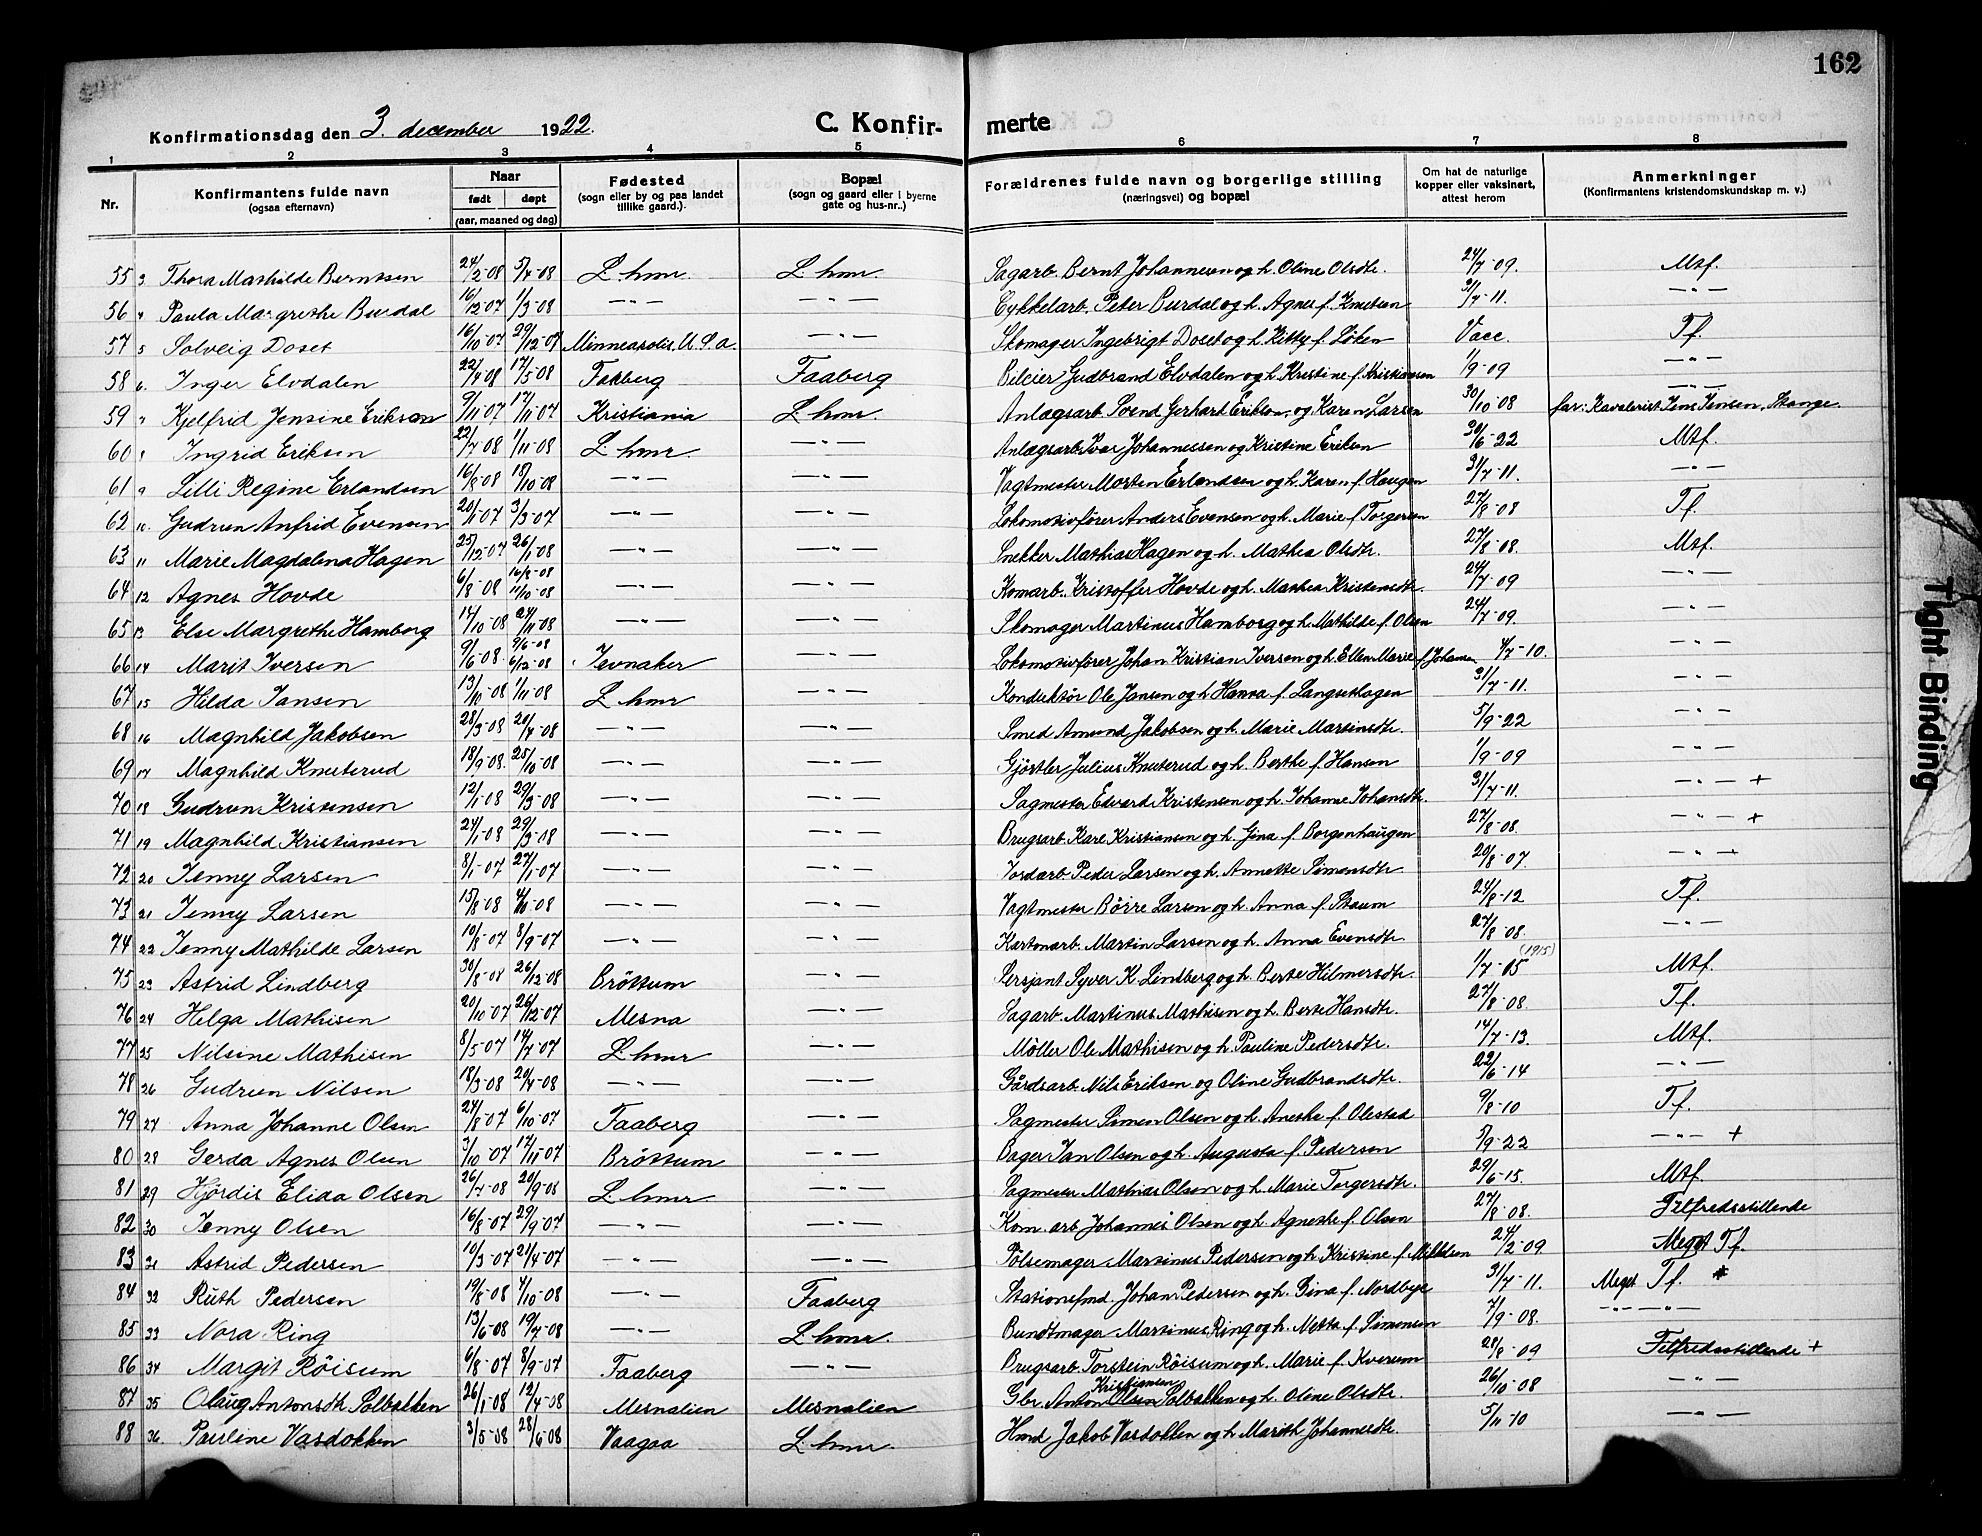 162
Konfirmationsdag den 3. december 1922.
C. Konfirmerte
1 2 3 4 5 6 7 8
Nr.
Konfirmantens fulde navn
(ogsaa efternavn)
Naar
født døpt
(aar, maaned og dag)
Fødested
(sogn eller by og paa landet
tillike gaard.)
Bopæl
(sogn og gaard eller i byerne
gate og hus-nr.)
Forældrenes fulde navn og borgerlige stilling
(næringsvei) og bopæl
Om hat de naturlige
kopper eller vaksinert,
attest herom
Anmerkninger
(Konfirmantens kristendomskundskap m. v.)
55 3 Thora Mathilde Berntsen 24/2-08 5/4-08 L.hmr. L.hmr. Sagarb. Bernt Johannesen og h. Oline Olsdtr. 24/7-09. Mtf.
56 " Paula Margrethe Burdal 16/12-07 1/3-08 — " — — " — Cykkelarb. Peter Burdal og h. Agnes f. Knutsen 31/7-11. — " —
57 5 Solveig Doset 16/10-07 29/12-07 Minneapolis. U.S.a. — " — Skomager Ingebrigt Doset og h. Kitty f. Løken Vacc. Tf.
58 6. Inger Elvdalen 22/4-08 17/5-08 Faaberg Faaberg Bileier Gudbrand Elvdalen og h. Kristine f. Kristiansen 1/9-09 — " —
59 " Kjelfrid Jensine Eriksen 9/11-07 17/11-07 Kristiania L.hmr. Anlægsarb. Svend Gerhart Erikson og Karen Larsen 30/10-08 — " — far: Kavalerist Jens Jensen, Stange.
60 8 Ingrid Eriksen 22/7-08 1/11-08 L.hmr. — " — Anlægsarb. Ivar Johannessen og Kristine Eriksen 30/6-22 Mtf.
61 9 Lilli Regine Erlandsen 16/8-08 18/10-08 — " — — " — Vagtmester Morten Erlandsen og h. Karen f. Haugen 31/7-11. — " —
62 10. Gudrun Anfrid Evensen 20/11-07 3/3-07 — " — — " — Lokomotivfører Anders Evensen og h. Marie f. Torgersen 27/8-08 Tf.
63 11 Marie Magdalena Hagen 25/12-07 26/1-08 — " — — " — Snekker Mathias Hagen og h. Mathea Olsdtr. 27/8-08. Mtf.
64 12 Agnes Hovde 6/8-08 16/8-08 11/10-08 — " — — " — Komarb. Kristoffer Hovde og h. Mathea Kristensdtr. 24/7-09 — " —
65 13 Else Margrethe Hamborg 14/10-08 24/11-08 — " — — " — Skomager Martinus Hamborg og h. Mathilde f. Olsen 24/7-09. — " —
66 14 Marit Iversen 9/6-08. 9/6-08 6/12-08 Jevnaker — " — Lokomotivfører Johan Kristian Iversen og h. Ellen Marie f. Johansen 4/7-10. — " —
67 15 Hilda Jansen 13/10-08 1/11-08 L.hmr — " — Konduktør Ole Jansen og h. Hanna f. Langsethagen 31/7-11. — " —
68 16 Magnhild Jakobsen 28/3-08 20/4-08 — " — — " — Smed Amund Jakobsen og h. Marie Martinsdtr. 5/9-22 — " —
69 17 Magnhild Knuterud 18/9-08. 25/10-08 — " — — " — Gjørtler Julius Knuterud og h. Berthe f. Hansen 1/9-09 — " —
70 18 Gudrun Kristensen 12/1-08 29/3-08 — " — — " — Sagmester Edvard Kristensen og h. Johanne Johansdtr. 31/7-11. — " — +
71 19 Magnhild Kristiansen 24/1-08 29/3-08 — " — — " — Brugsarb. Kare Kristiansen og h. Gina f. Borgenhaugen 27/8-08. — " — +
72 20 Jenny Larsen 8/1-07 27/1-07 — " — — " — Jordarb Peder Larsen og h. Annette Simensdtr. 20/8-07 — " — +
73 21 Jenny Larsen 15/8-08 4/10-08 — " — — " — Vagtmester Börre Larsen og h. Anna f. Staum 24/8-12 Tf.
74 22 Jenny Mathilde Larsen 10/8-07 8/9-07 — " — — " — Kartonarb. Martin Larsen og h. Anna Evensdtr 27/8-08. — " —
75 23 Astrid Lindberg 30/8-08 26/12-08 Bröttum — " — Sersjant Syver K. Lindberg og h. Berte Hilmersdtr. 1/7-05 (1915) Mtf.
76 24 Helga Mathisen 20/10-07 26/12-07 Mesna — " — Sagarb. Martinus Mathisen og h. Berte Hansdtr. 27/8-08. Tf.
77 25 Nilsine Mathisen 8/5-07 14/7-07 L.hmr — " — Möller Ole Mathisen og h. Pauline Pedersdtr. 14/7-13. Mtf.
78 26 Gudrun Nilsen 18/3-08 20/4-08 — " — — " — Gårdsarb. Nils Eriksen og Oline Gudbrandsdtr. 22/6-14 — " —
79 27 Anna Johanne Olsen 24/8-07 6/10-07 Faaberg — " — Sagmester Simen Olsen og h. Anethe f. Olestad 9/8-10 Tf.
80 28 Gerda Agnes Olsen 3/10-07 17/11-07 Bröttum — " — Bager Jan Olsen og h. Augusta f. Pedersen 5/9-22 — " — +
81 29 Hjördis Elida Olsen 26/7-08 20/9-08 L.hmr — " — Sagmester Mathias Olsen og h. Marie Torgersdtr. 29/6-15. Mtf.
82 30 Jenny Olsen 16/8-07 29/9-07 — " — — " — Kom. arb Johannes Olsen og h. Agnethe f. Olsen 27/8-08. Tilfredsstillende
83 31 Astrid Pedersen 10/3-07 21/4-07 — " — — " — Pölsemager Martinus Pedersen og h. Kristine f. Mikkelsen 24/2-09 Meget Tf.
84 32 Ruth Pedersen 19/8-08 4/10-08 — " — Faaberg Stationsfmd. Johan Pedersen og h. Gina f. Nordbye 31/7-11. Meget Tf. *
85 33 Nora Ring 13/6-08 19/7-08 — " — L.hmr. Bundtmager Martinus Ring og h. Netta f. Simensen 7/9-08. — " — " —
86 34 Margit Röisum 6/8-07 8/9-07 Faaberg — " — Brugsarb. Torstein Röisum og h. Marie f. Kverum 28/8-09 Tilfredsstillende +
87 35 Olaug Antonsdtr. Solbakken 26/1-08 12/4-08 Mesnalien Mesnalien Gbr. Anton Kristiansen Olsen Solbakken og h. Oline Olsdtr. 26/10-08 — " —
88 36. Pauline Vasdokken 3/5-08 28/6-08 Vaagaa L.hmr Hmd Jakob Vasdokken og h Marith Johannesdtr. 5/11-10 — " —
Tight Binding